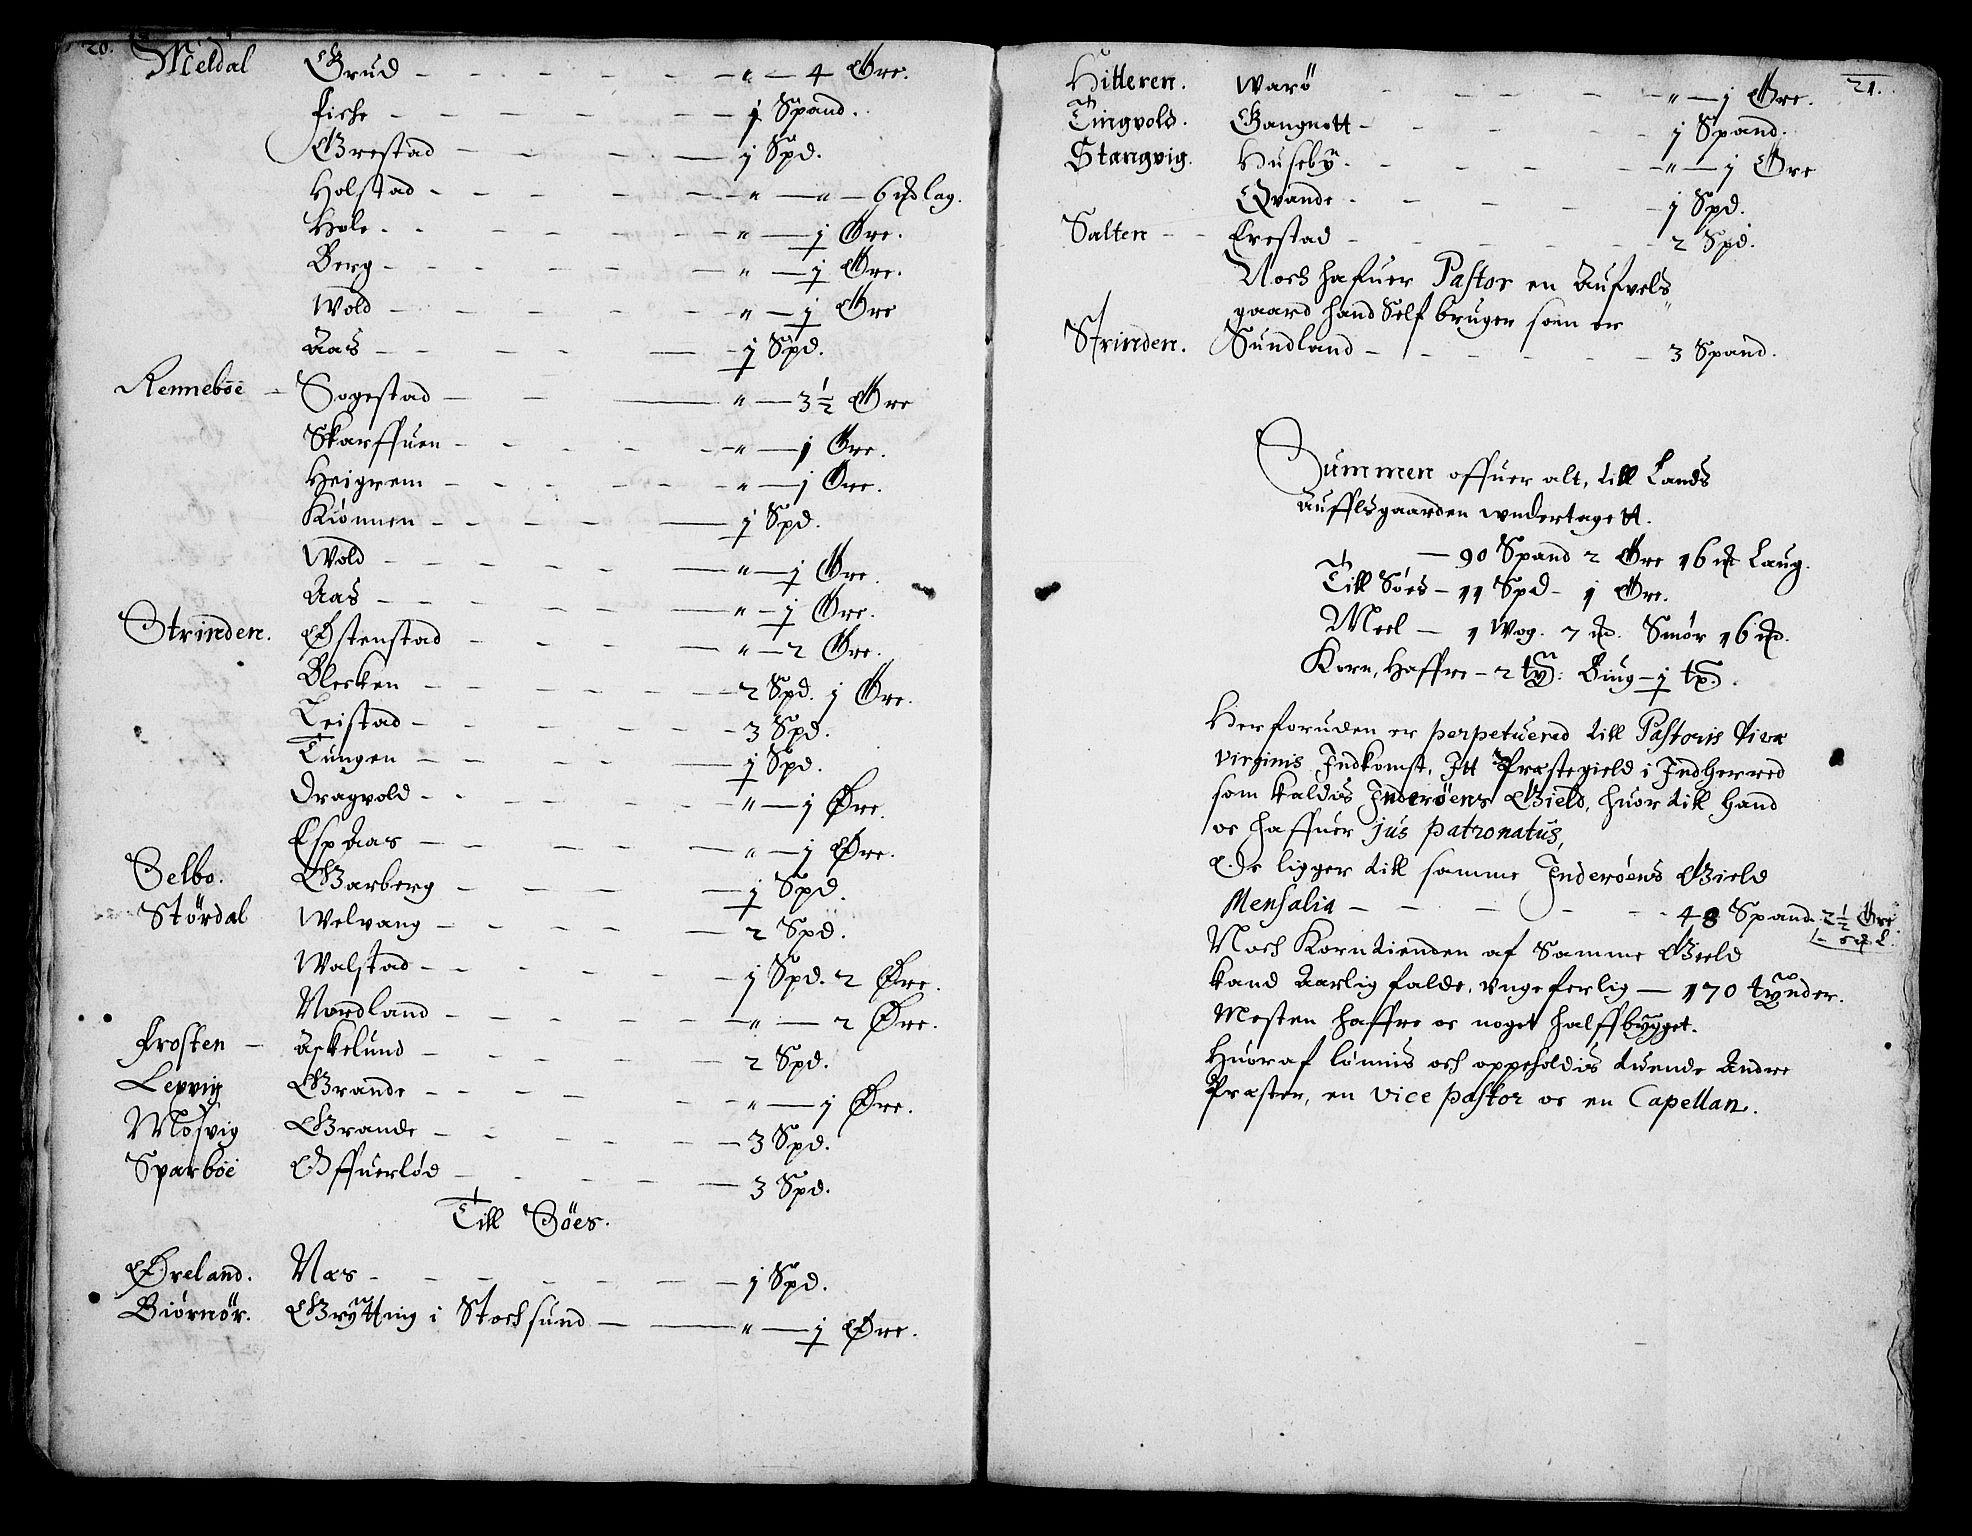 20.
Meldal Grud — " — 4 Øre.
Fiche — 1 Spand.
Grestad — 1 Spd.
Holstad — " — " — 6 lag.
Hole — " — 1 Øre.
Berg — " — 1 Øre.
Wold — " — 1 Øre
Aas — 1 Spd.
Rennebøe — Sogestad — " — 3½ Øre
Skarffuen — " — 1 Øre.
Heigrem — " — 1 Øre.
Kiønnen — 1 Spd.
Wold — " — 1 Øre.
Aas — " — 1 Øre.
Strinden. Østenstad — " — 2 Øre.
Blecken — 2 Spd. 1 Øre.
Leistad — 3 Spd.
Tungen — 1 Spd.
Dragvold — " — 1 Øre.
Esp Aas — " — 1 Øre.
Selbo. Garberg — 1 Spd.
Størdal Welvang — 2 Spd.
Walstad — 1 Spd. 2 Øre.
Nordland — " — 2 Øre.
Frosten — Askelund — 2 Spd.
Lexvig Grande — " — 1 Øre.
Mosvig Grande — 3 Spd.
Sparboe Offuerlød — 3 Spd.
Till Søes.
Øreland. Næs — 1 Spd.
Biørnør. Grytting i Stochsund — " — 1 Øre.
21.
Hitteren. Warö — " — 1 Øre.
Tingvold. Gangnott — 1 Spand.
Stangvig. Huseby. — " — 1 Øre
Qvande — 1 Spd.
Salten — Erestad — 2 Spd.
Noch hafuer Pastor en Aufvels
gaard hand Self bruger som er
Strinden. Sundland — 3 Spand.
Summen offuer alt, till Lands
Aufflsgaarden undertagett.
— 90 Spand 2 Øre 16 Laug.
Till Søes — 11 Spd — 1 Øre.
Meel — 1 Wog. 7 Smør 16
Korn, Haffre — 2 tÿ: Biug — 1 tø.
Herforuden er perpetuered till Pastoris Divæ
virginis Indkomst, Itt Præstegield i Indherred
som kaldis Inderöens Gield, huor till hand
oc haffuer jus patronatus,
Oc ligger till samme Inderøens Gield
Mensalia — 48 Spand 2½ Øre
Noch Korntienden af samme Gield
kand Aarlig falde, vngeferlig — 170 tÿnder.
Mesten haffre oc noget halffbygget.
Huoraf lønnis och oppeholdis tuende Andre
Præster, en vice pastor oc en Capellan.